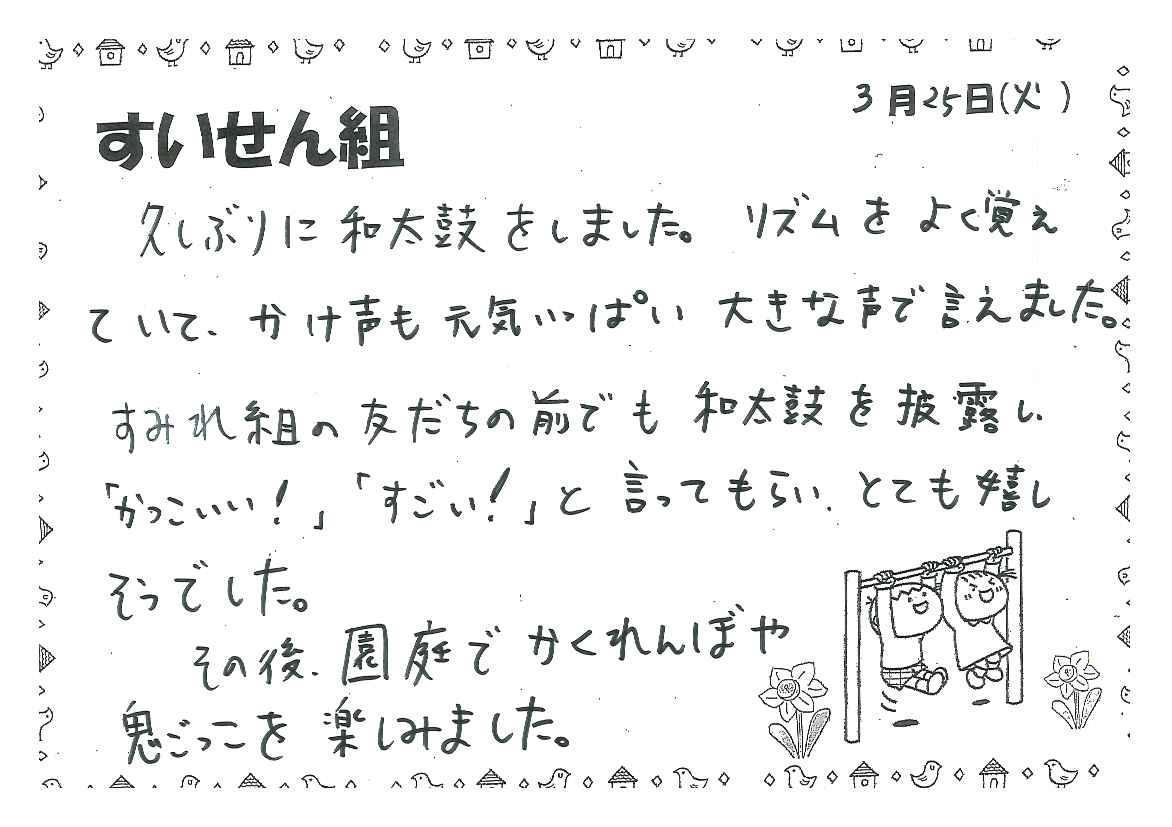 3月25日(火)
すいせん組
久しぶりに和太鼓をしました。リズムをよく覚え
ていて、かけ声も元気いっぱい大きな声で言えました。
すみれ組の友だちの前でも和太鼓を披露し、
「かっこいい!」「すごい!」と言ってもらい、とても嬉し
そうでした。
その後、園庭でかくれんぼや
鬼ごっこを楽しみました。